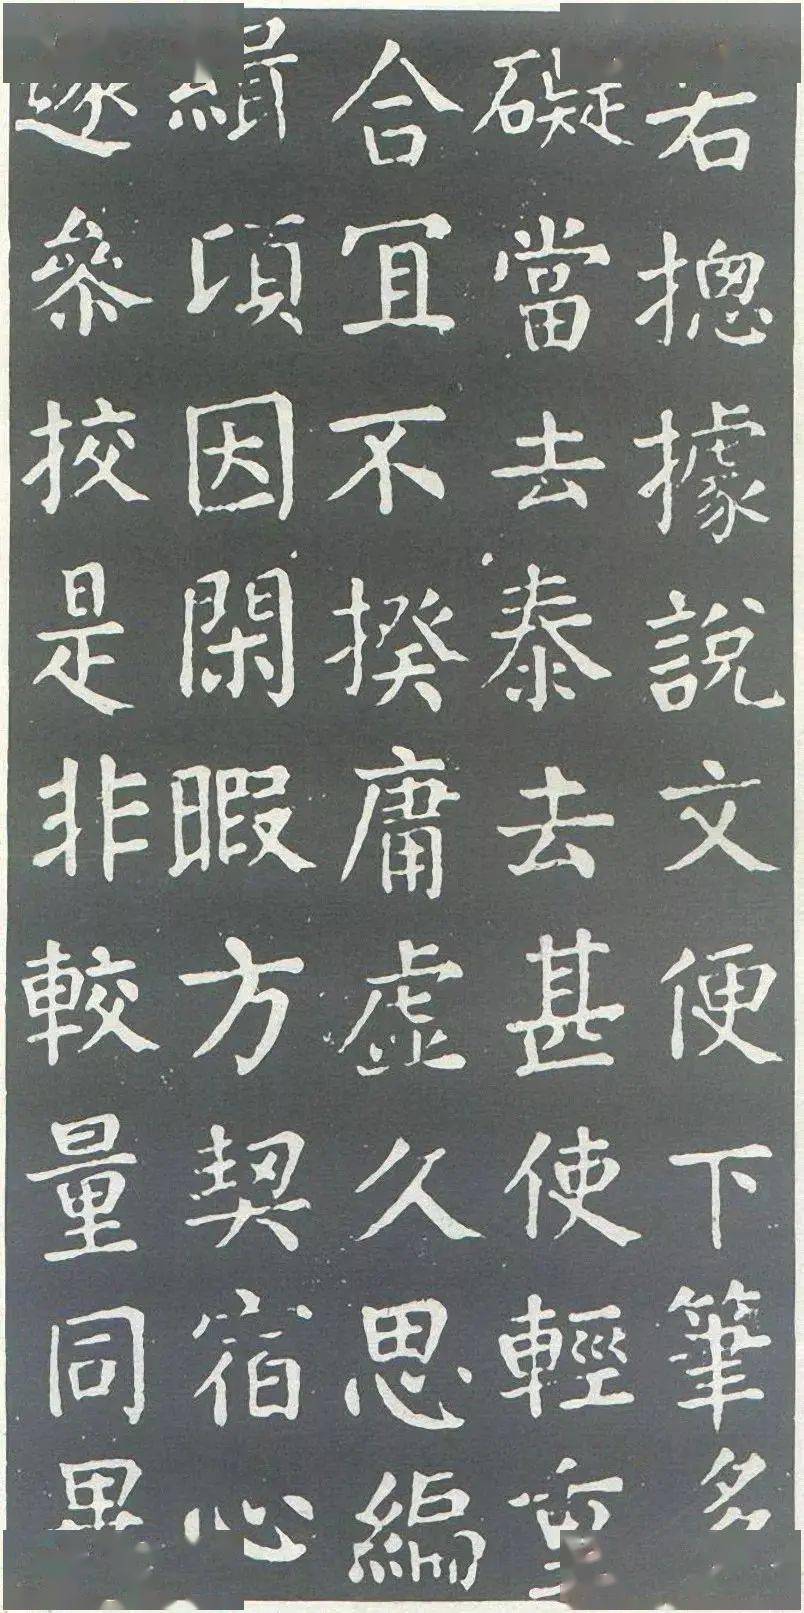 若揔據說文便下筆多
礙當去泰去甚使輕重
合宜不揆庸虛久思編
緝頃因閑暇方契宿心
遂參挍是非較量同異